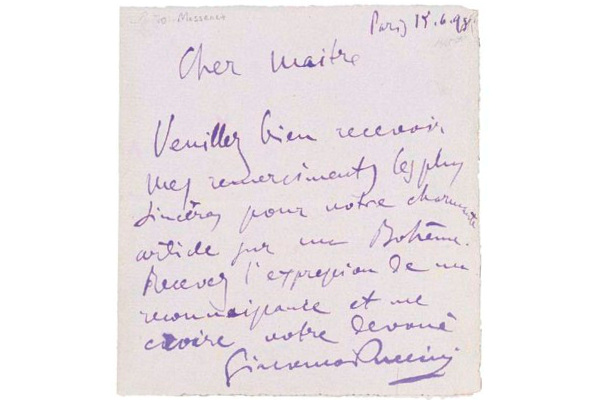 Paris 18.6.98
Cher maître
Veuillez bien recevoir
mes remercîments les plus
sincères pour votre charmante
article sur ma Bohême.
Recevez l'expression de ma
reconnaissance et me
croire votre devoué
Giacomo Puccini